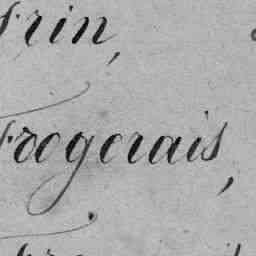 Frin,
Frogerais,